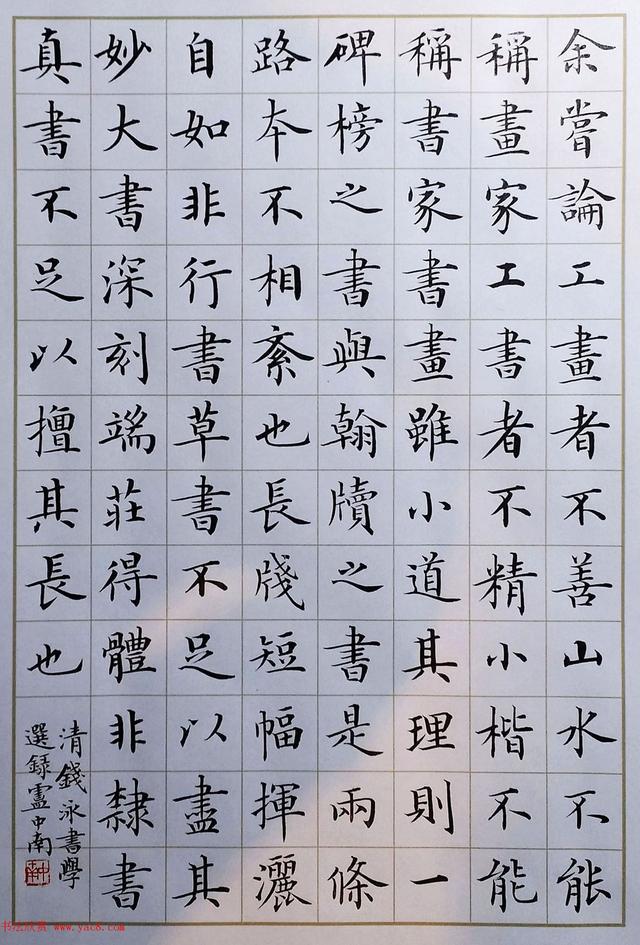 余嘗論工畫者不善山水不能
稱畫家工書者不精小楷不能
稱書家書畫雖小道其理則一
碑榜之書與翰牘之書是兩條
路本不相紊也長牋短幅揮灑
自如非行書草書不足以盡其
妙大書深刻端莊得體非隸書
真書不足以擅其長也
清錢泳書學
選録盧中南
书法欣赏 www.yac8.com